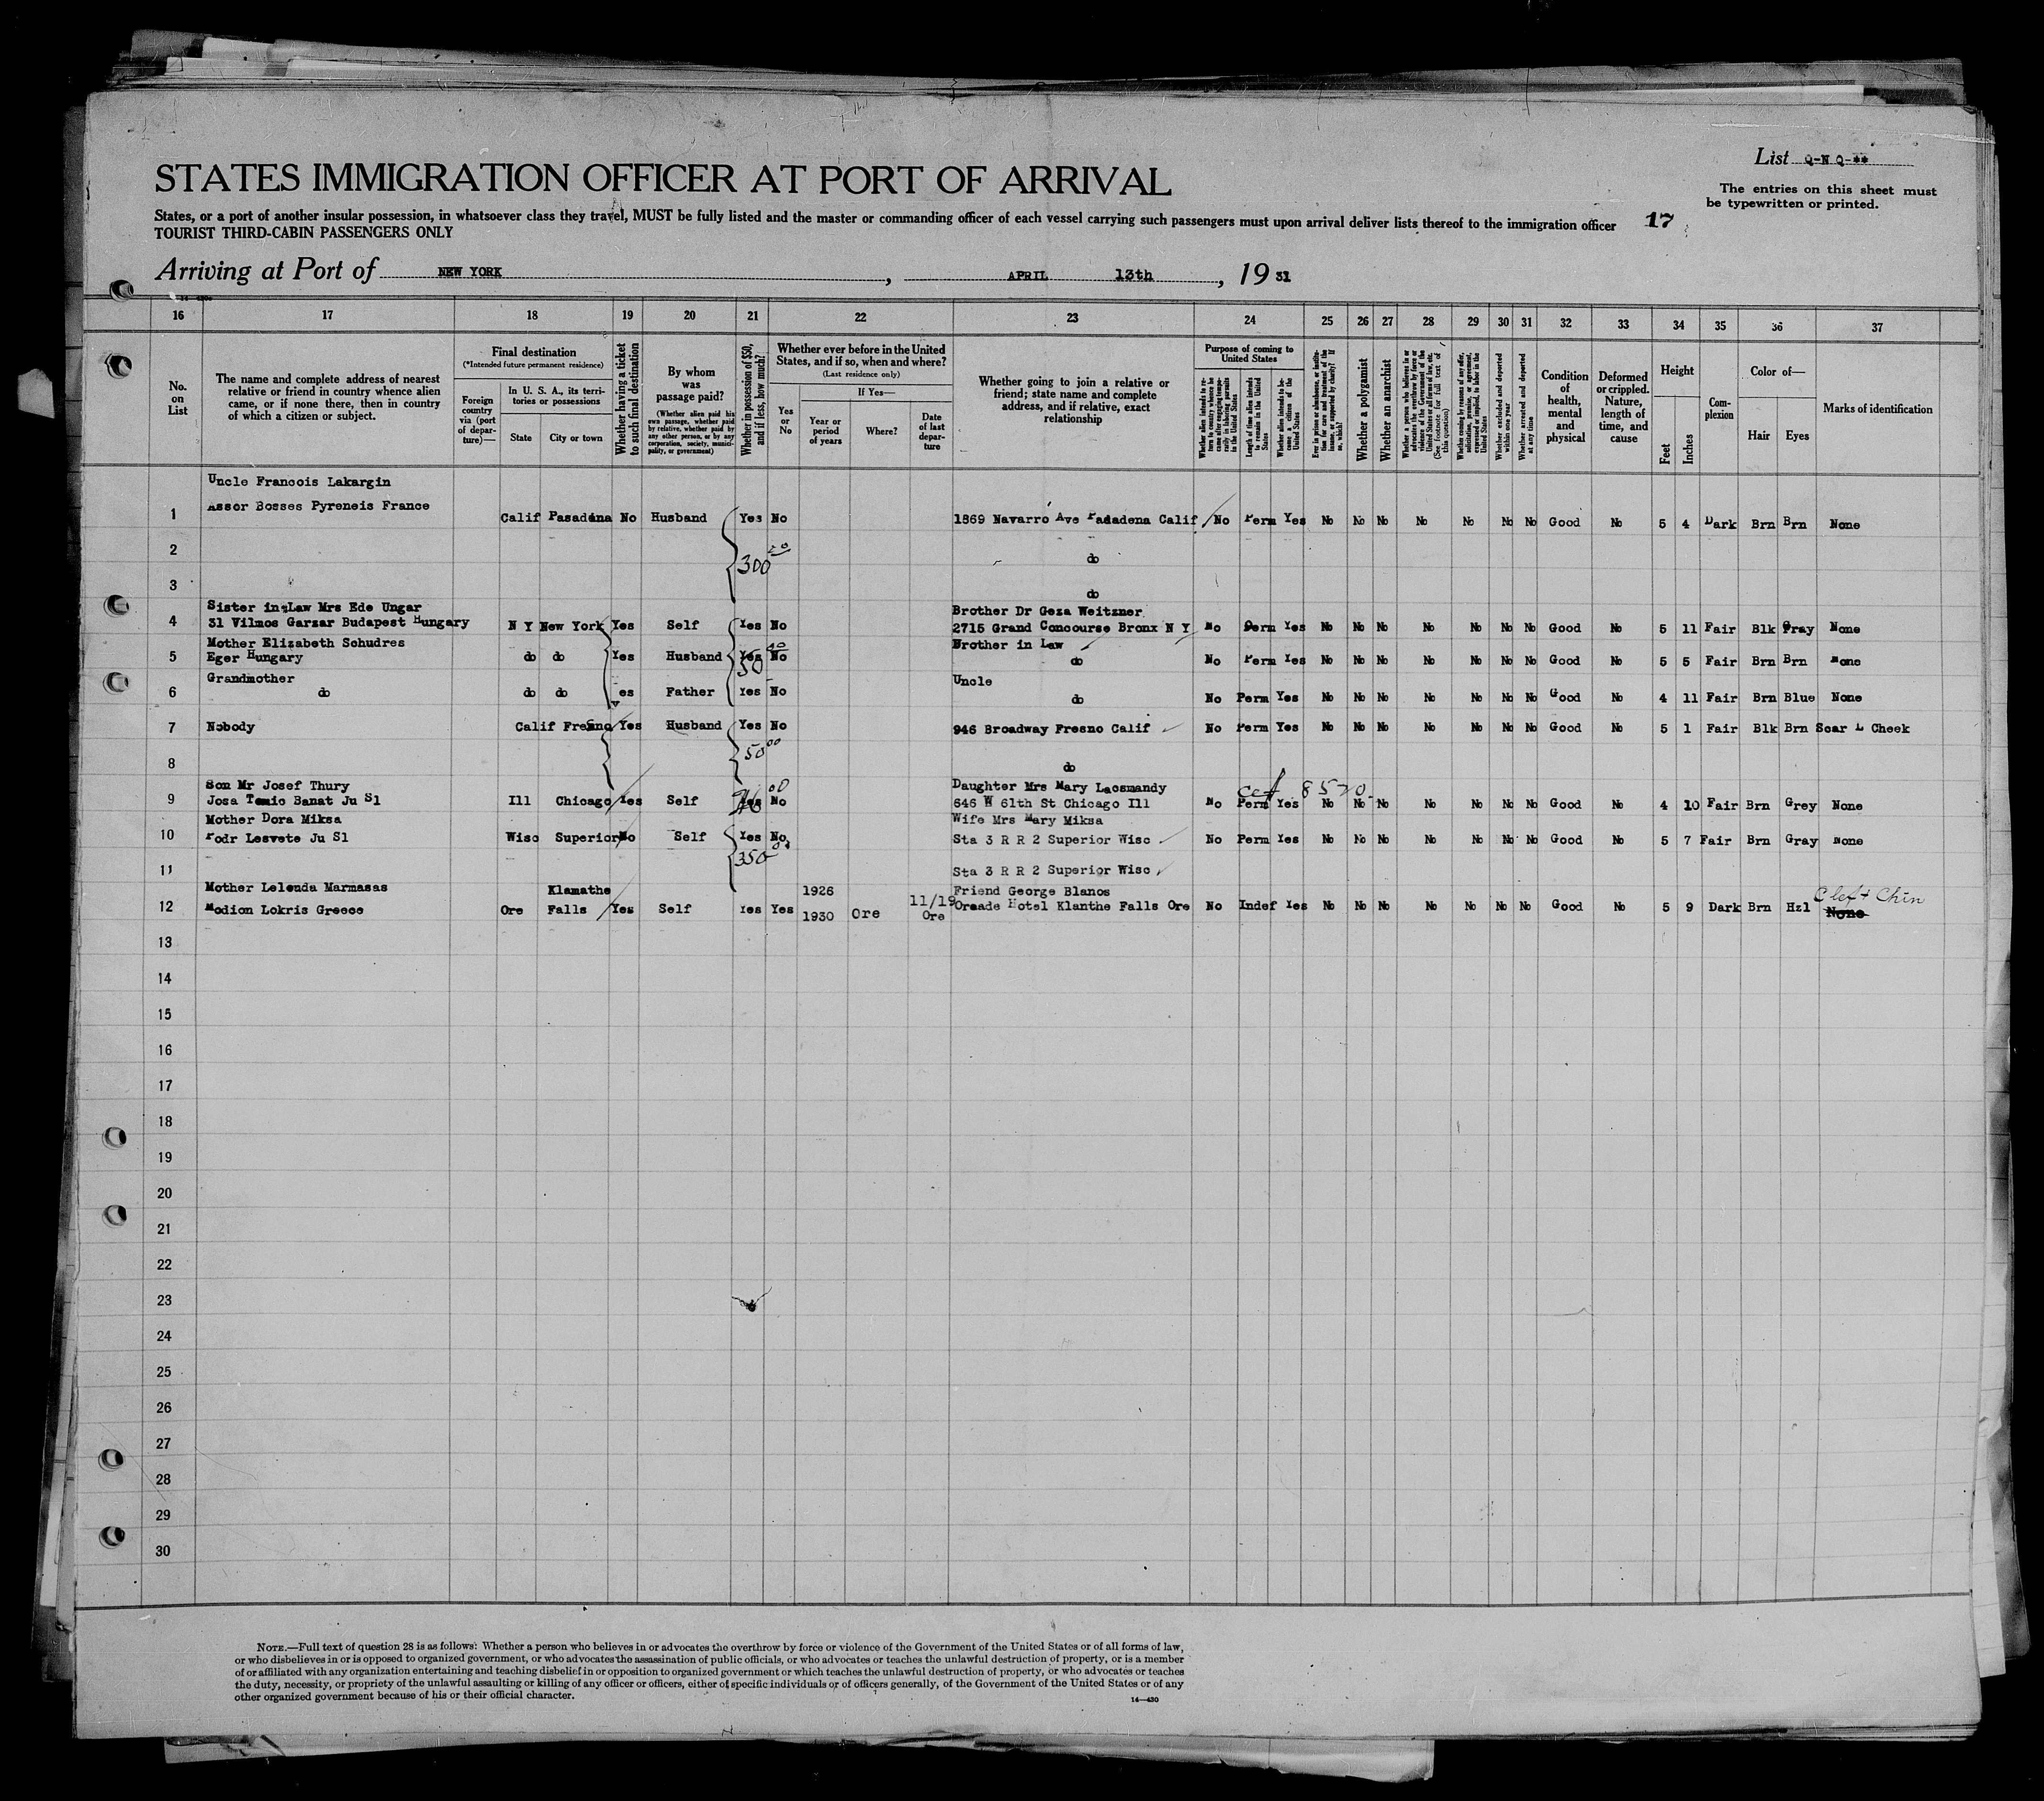 List Q-N Q-**
STATES IMMIGRATION OFFICER AT PORT OF ARRIVAL
The entries on this sheet must
be typewritten or printed.
States, or a port of another insular possession, in whatsoever class they travel, MUST be fully listed and the master or commanding officer of each vessel carrying such passengers must upon arrival deliver lists thereof to the immigration officer
17
TOURIST THIRD-CABIN PASSENGERS ONLY
Arriving at Port of NEW YORK, APRIL 13th, 19 31
16 17 18 19 20 21 22 23 24 25 26 27 28 29 30 31 32 33 34 35 36 37
No. on List
The name and complete address of nearest relative or friend in country whence alien came, or if none there, then in country of which a citizen or subject.
Final destination
(*Intended future permanent residence)
Foreign country via (port of departure)—
In U. S. A., its territories or possessions
State
City or town
Whether having a ticket to such final destination
By whom was passage paid?
(Whether alien paid his own passage, whether paid by relative, whether paid by any other person, or by any corporation, society, municipality, or government)
Whether in possession of $50, and if less, how much?
Whether ever before in the United States, and if so, when and where?
(Last residence only)
Yes or No
If Yes—
Year or period of years
Where?
Date of last departure
Whether going to join a relative or friend; state name and complete address, and if relative, exact relationship
Purpose of coming to United States
Whether alien intends to return to country whence he came after engaging temporarily in laboring pursuits in the United States
Length of time alien intends to remain in the United States
Whether alien intends to become a citizen of the United States
Ever in prison or almshouse, or institution for care and treatment of the insane, or supported by charity? If so, which?
Whether a polygamist
Whether an anarchist
Whether a person who believes in or advocates the overthrow by force or violence of the Government of the United States or all forms of law, etc. (See footnote for full text of this question)
Whether coming by reasons of any offer, solicitation, promise, or agreement, expressed or implied, to labor in the United States
Whether excluded and deported within one year
Whether arrested and deported at any time
Condition of health, mental and physical
Deformed or crippled. Nature, length of time, and cause
Height
Feet
Inches
Complexion
Color of—
Hair
Eyes
Marks of identification
Uncle Francois Lakargin
1 Assor Bosses Pyreneis France Calif Pasadena No Husband Yes No 1869 Navarro Ave Padadena Calif No Perm Yes No No No No No No No Good No 5 4 Dark Brn Brn None
2 300 do
3 do
Sister in Law Mrs Ede Ungar Brother Dr Geza Weitzner
4 31 Vilmos Garzar Budapest Hungary N Y New York Yes Self Yes No 2715 Grand Concourse Bronx N Y No Perm Yes No No No No No No No Good No 5 11 Fair Blk Gray None
Mother Elizabeth Schudres Brother in Law
5 Eger Hungary do do Yes Husband Yes 50 No do No Perm Yes No No No No No No No Good No 5 5 Fair Brn Brn None
Grandmother Uncle
6 do do do es Father Yes No do No Perm Yes No No No No No No No Good No 4 11 Fair Brn Blue None
7 Nobody Calif Fresno Yes Husband Yes No 946 Broadway Fresno Calif No Perm Yes No No No No No No No Good No 5 1 Fair Blk Brn Scar L Cheek
8 50 00 do
Son Mr Josef Thury Daughter Mrs Mary Lacsmandy 8520
9 Josa Tamic Banat Ju Sl Ill Chicago Yes Self Yes No 646 W 61th St Chicago Ill No Perm Yes No No No No No No No Good No 4 10 Fair Brn Grey None
Mother Dora Miksa Wife Mrs Mary Miksa
10 Podr Lesvete Ju Sl Wisc Superior No Self Yes No Sta 3 R R 2 Superior Wisc No Perm Yes No No No No No No No Good No 5 7 Fair Brn Gray None
11 350 Sta 3 R R 2 Superior Wisc
Mother Lelenda Marmasas Klamathe 1926 Friend George Blanos Cleft Chin
12 Modion Lokris Greece Ore Falls Yes Self Yes Yes 1930 Ore 11/19 Ore Oreade Hotel Klanthe Falls Ore No Indef Yes No No No No No No No Good No 5 9 Dark Brn Hzl None
13
14
15
16
17
18
19
20
21
22
23
24
25
26
27
28
29
30
NOTE.—Full text of question 28 is as follows: Whether a person who believes in or advocates the overthrow by force or violence of the Government of the United States or of all forms of law,
or who disbelieves in or is opposed to organized government, or who advocates the assassination of public officials, or who advocates or teaches the unlawful destruction of property, or is a member
of or affiliated with any organization entertaining and teaching disbelief in or opposition to organized government or which teaches the unlawful destruction of property, or who advocates or teaches
the duty, necessity, or propriety of the unlawful assaulting or killing of any officer or officers, either of specific individuals or of officers generally, of the Government of the United States or of any
other organized government because of his or their official character.
14—430